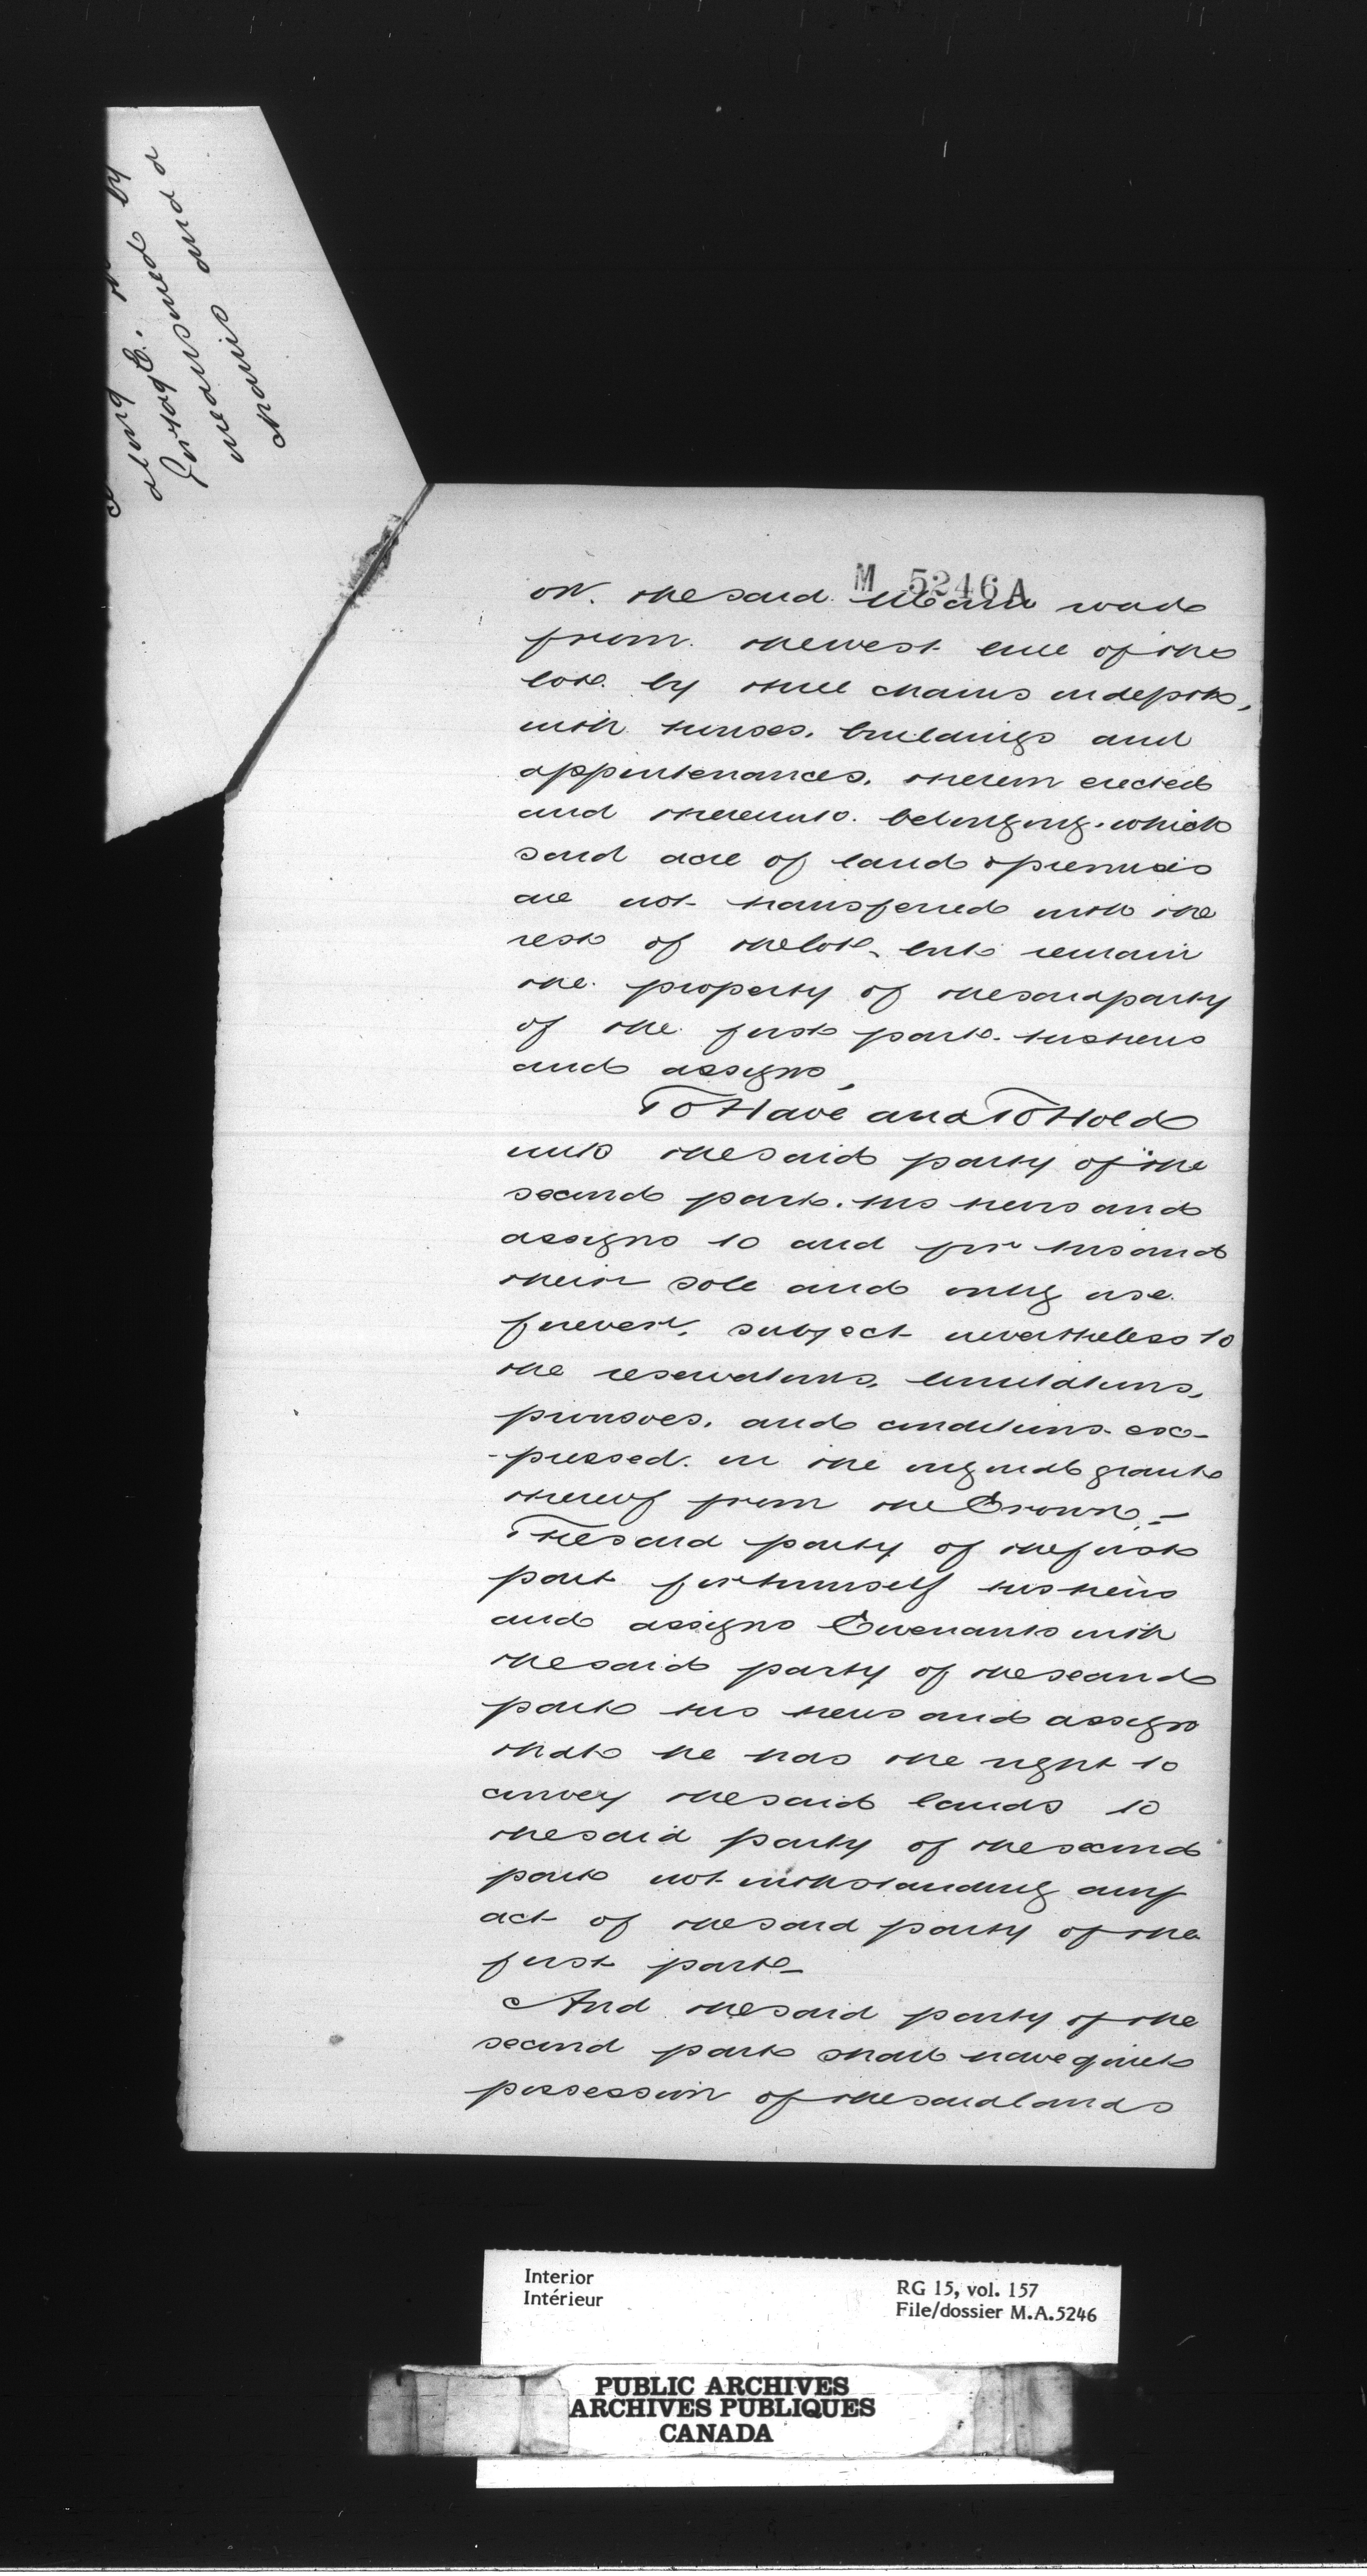 by
and a
means and
chains
M 5246 A
on the said Main road
from the west line of the
lot by three chains in depth,
with houses, buildings and
appurtenances, therein erected
and thereunto belonging, which
said acre of land & premises
are not transferred with the
rest of the lot, but remain
the property of the said party
of the first part, his heirs
and assigns,
To Have and To Hold
unto the said party of the
second part, his heirs and
assigns to and for his and
their sole and only use
forever, subject nevertheless to
the reservations, limitations,
provisoes, and conditions ex-
-pressed in the original grant
thereof from the Crown,-
The said party of the first
part for himself his heirs
and assigns Covenants with
the said party of the second
part his heirs and assigns
that he has the right to
convey the said lands to
the said party of the second
part notwithstanding any
act of the said party of the
first part-
And the said party of the
second part shall have quiet
possession of the said lands
Interior
Intérieur
RG 15, vol. 157
File/dossier M.A.5246
PUBLIC ARCHIVES
ARCHIVES PUBLIQUES
CANADA